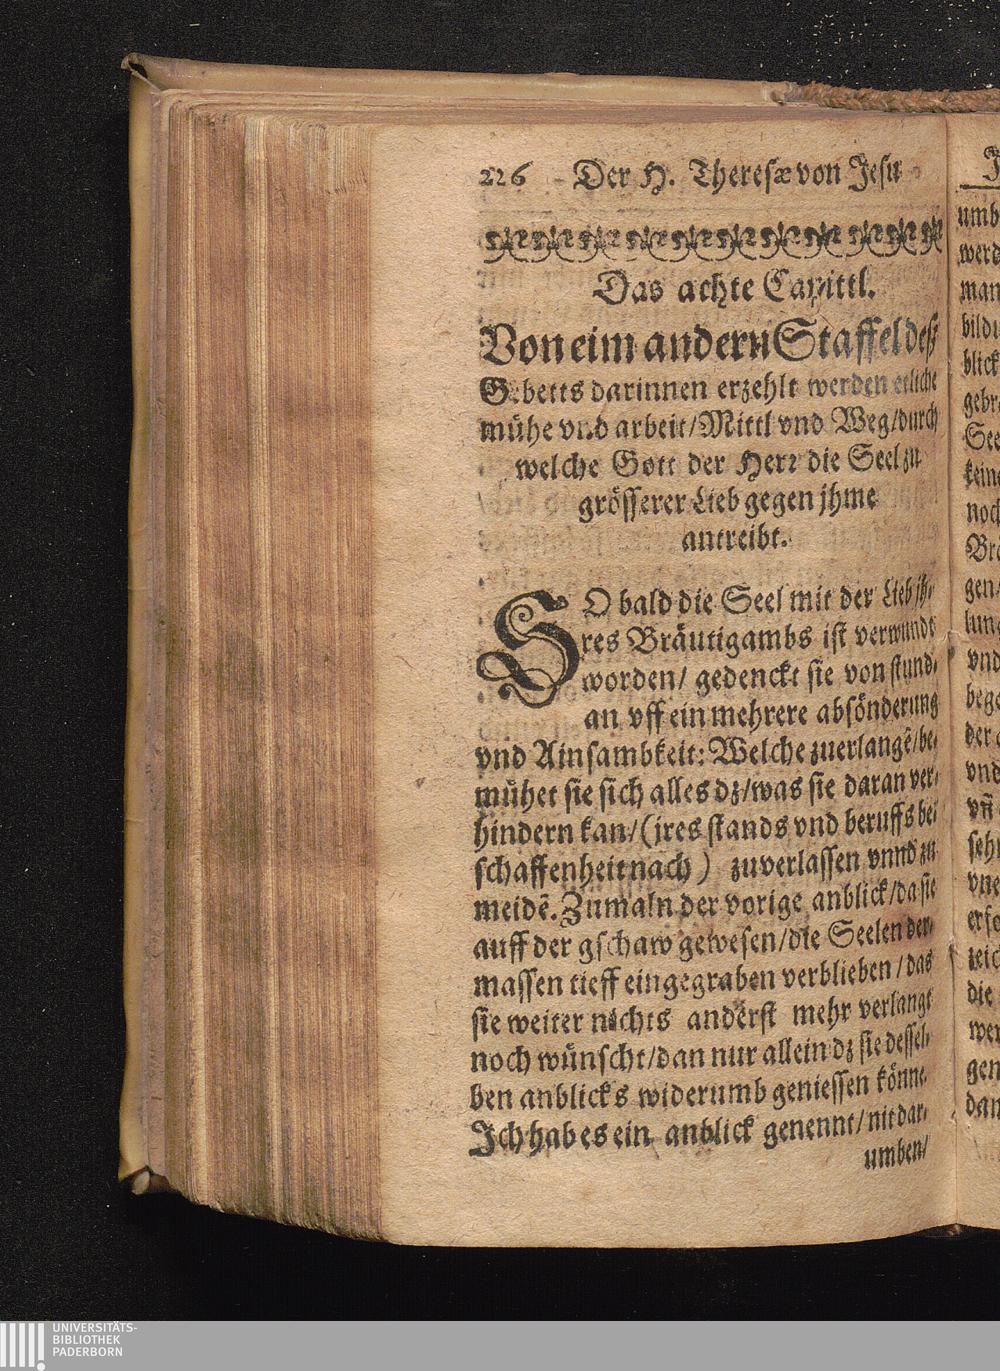 226 Der H. Theresæ von Jesu
Das achte Capittl.
Von eim andern Staffel deß
Gebetts darinnen erzehlt werden etliche
mühe vnd arbeit/Mittl vnd Weg/durch
welche Gott der Herr die Seel zu
grösserer Lieb gegen jhme
antreibt.
SO bald die Seel mit der Lieb jh-
res Bräutigambs ist verwundt
worden/ gedenckt sie von stund-
an vff ein mehrere absönderung
vnd Ainsambkeit: Welche zuerlangē/be-
mühet sie sich alles dz/was sie daran ver-
hindern kan/(jres stands vnd beruffs be-
schaffenheit nach) zuverlassen vnnd zu
meidē. Zumaln der vorige anblick/da sie
auff der gschaw gewesen/die Seelen der-
massen tieff eingegraben verblieben/das
sie weiter nichts anderst mehr verlangt
noch wünscht/dan nur allein dz sie dessel-
ben anblicks widerumb geniessen könne.
Ich hab es ein anblick genennt/nit dar-
umben/
umb
werd
man
bildt
blick
gebr
See
keine
noch
Brä
gen/
lung
vnd
bege
der
vnd
vñ
sehr
vne
erfo
reic
die
wer
gen
dan
UNIVERSITÄTS-
BIBLIOTHEK
PADERBORN